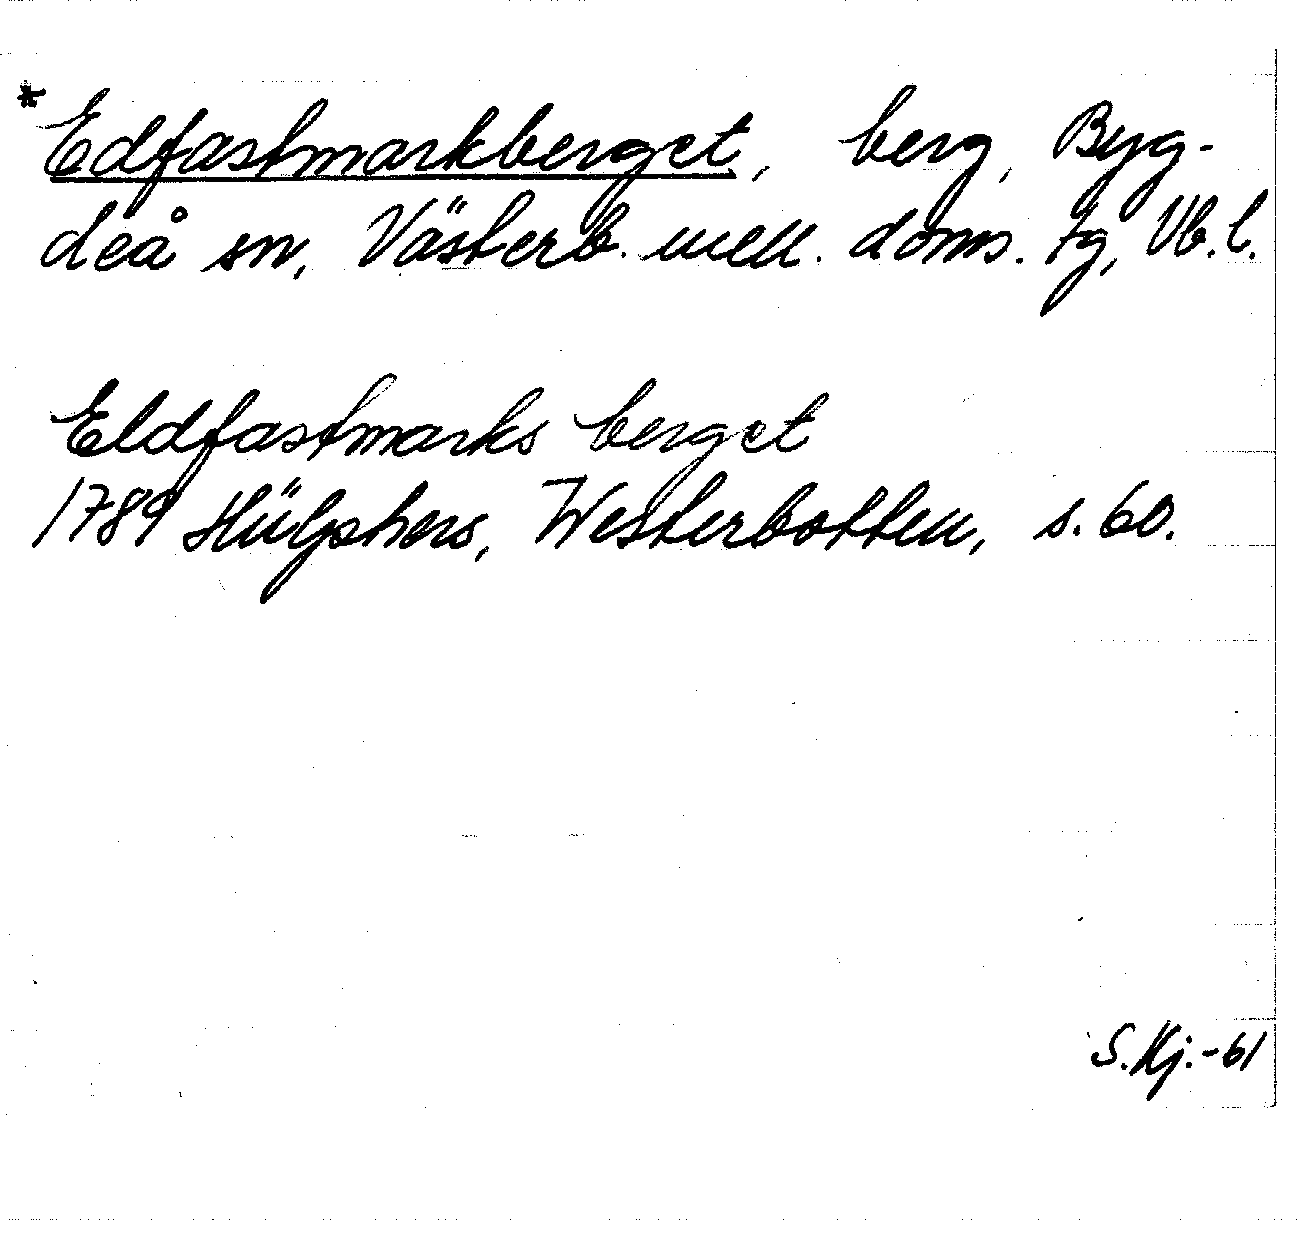 * Edfastmarkberget, berg, Byg-
deå sn, Västerb. mell. doms. tg, Vb. l.
Eldfastmarks berget
1789 Hülphers, Westerbotten, s. 60.
S. Kj. -61